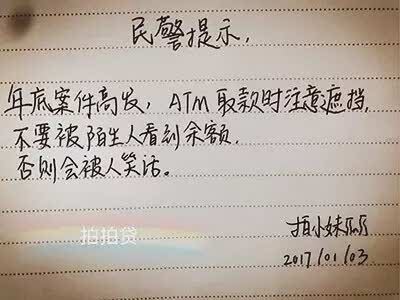 民警提示,
年底案件高发，ATM取款时注意遮挡,
不要被陌生人看到余额,
否则会被人笑话。
拍小妹
2017/01/03
拍拍贷